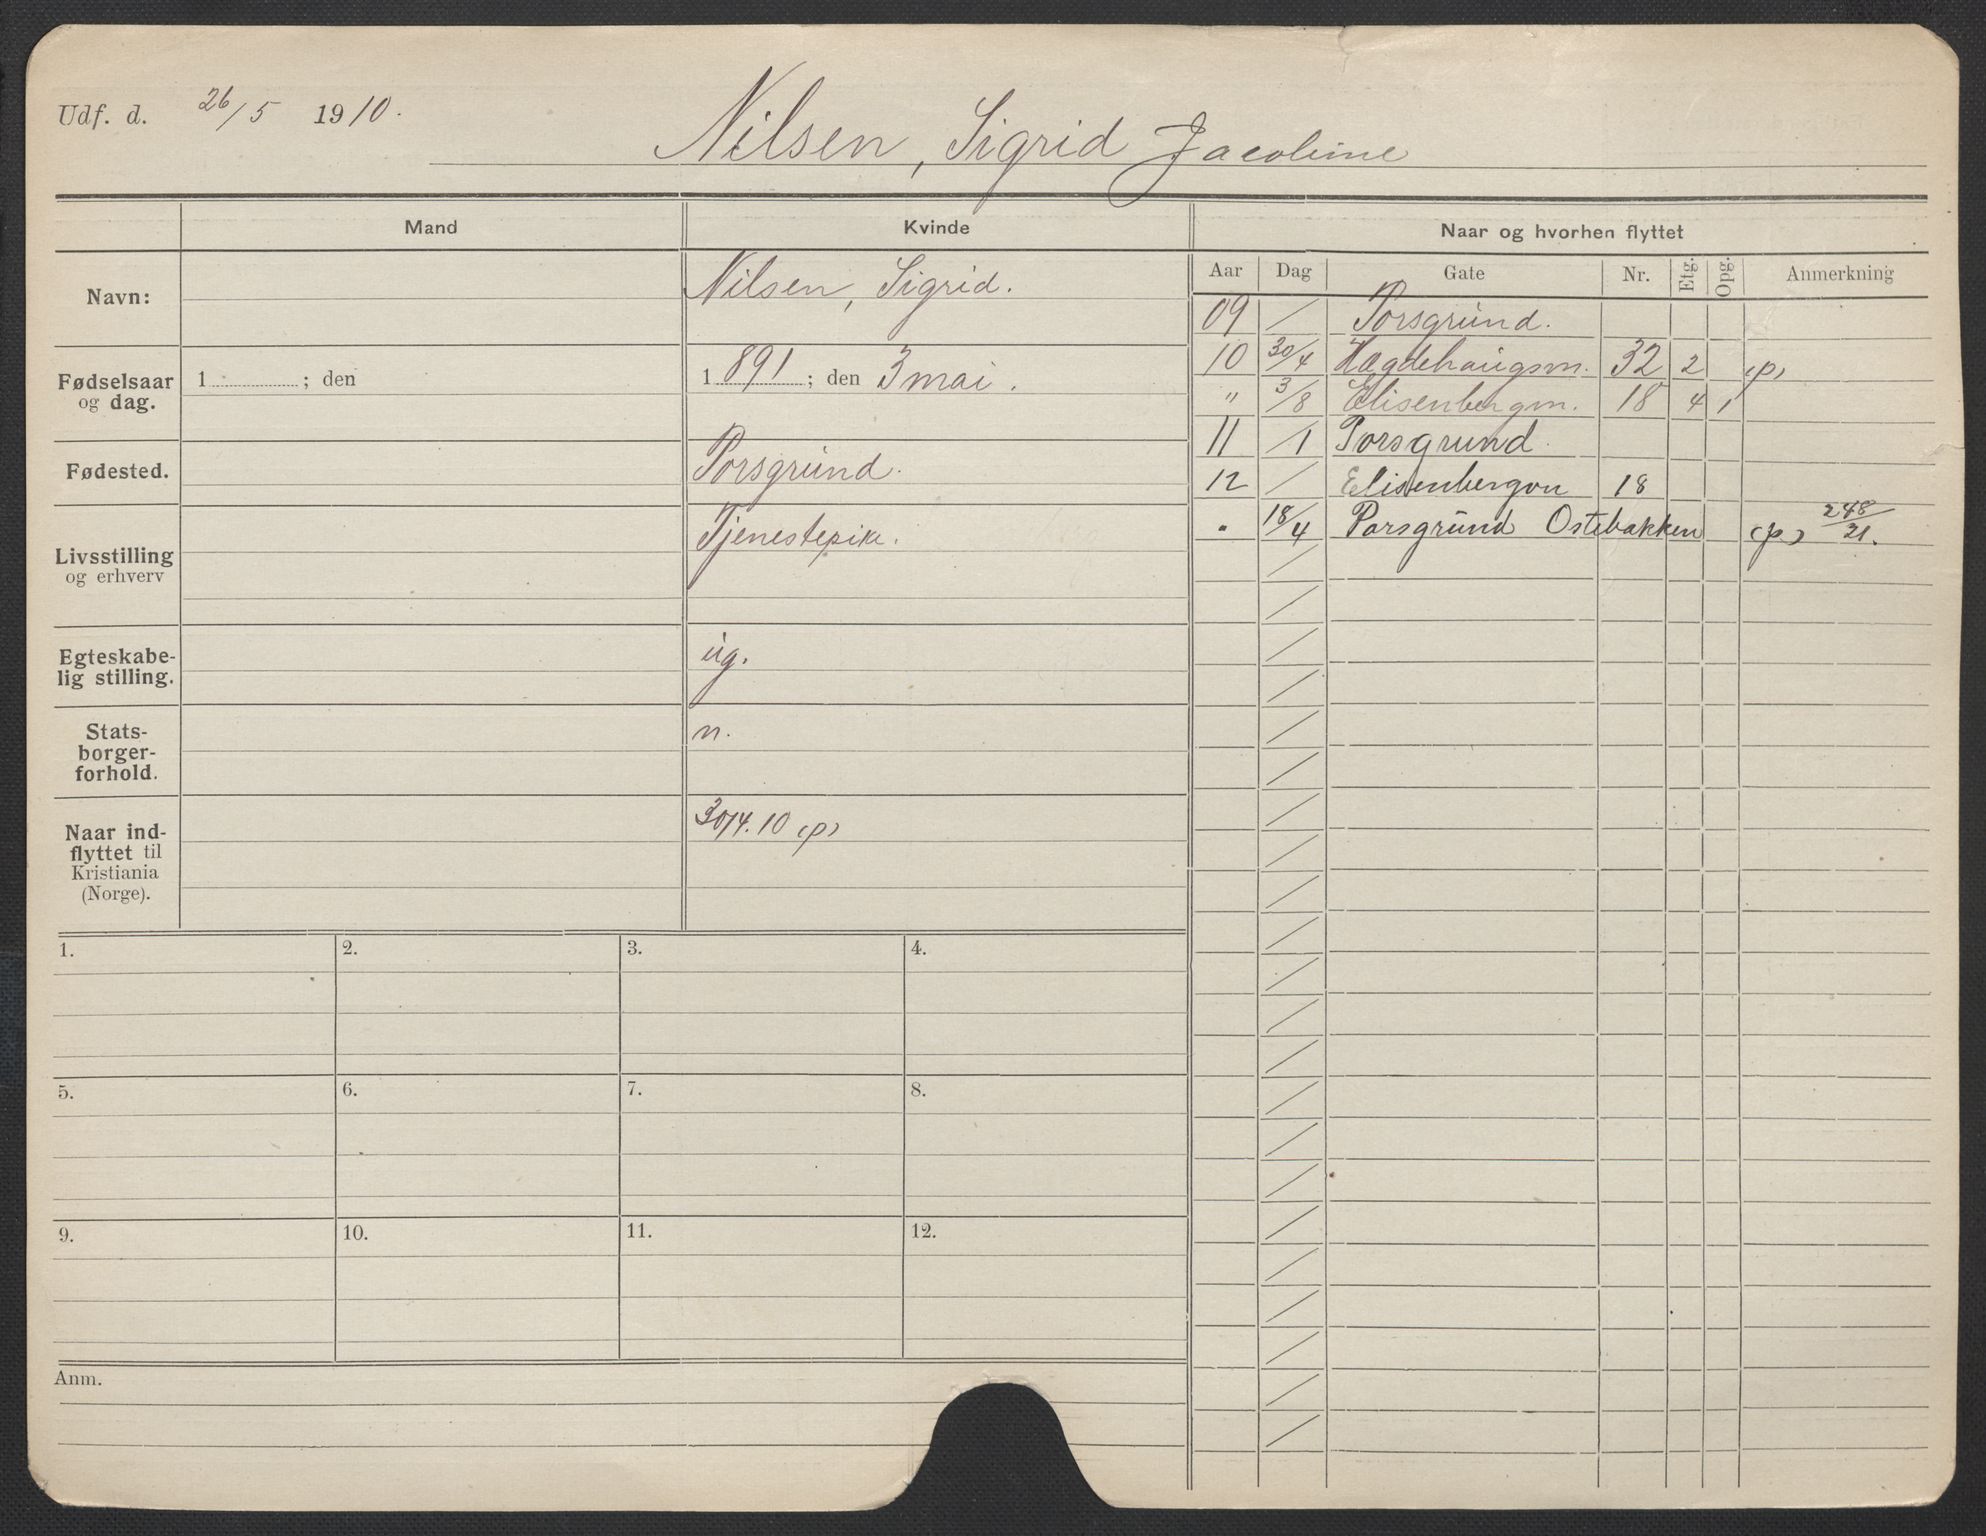 Udf. d. 26/5 1910.
Nilsen, Sigrid Jacobine
Mand
Kvinde
Naar og hvorhen flyttet
Aar Dag Gate Nr. Etg. Opg. Anmerkning
Navn:
Nilsen, Sigrid.
Fødselsaar og dag.
1 ; den
1 891 ; den 3 mai.
Fødested.
Porsgrund.
Livsstilling og erhverv
Tjenestepike.
Egteskabe-
lig stilling.
ug.
Stats-
borger-
forhold.
n.
Naar ind-
flyttet til
Kristiania
(Norge).
30/4. 10 (p)
09 / Porsgrund.
10 30/4 Hægdehaugsvn. 32 2 (p)
" 3/8 Elisenbergvn. 18 4 1
11 / 1 Porsgrund.
12 / Elisenbergvn 18
" 18/4 Porsgrund Ostebakken (p) 248/21.
1.
2.
3.
4.
5.
6.
7.
8.
9.
10.
11.
12.
Anm.